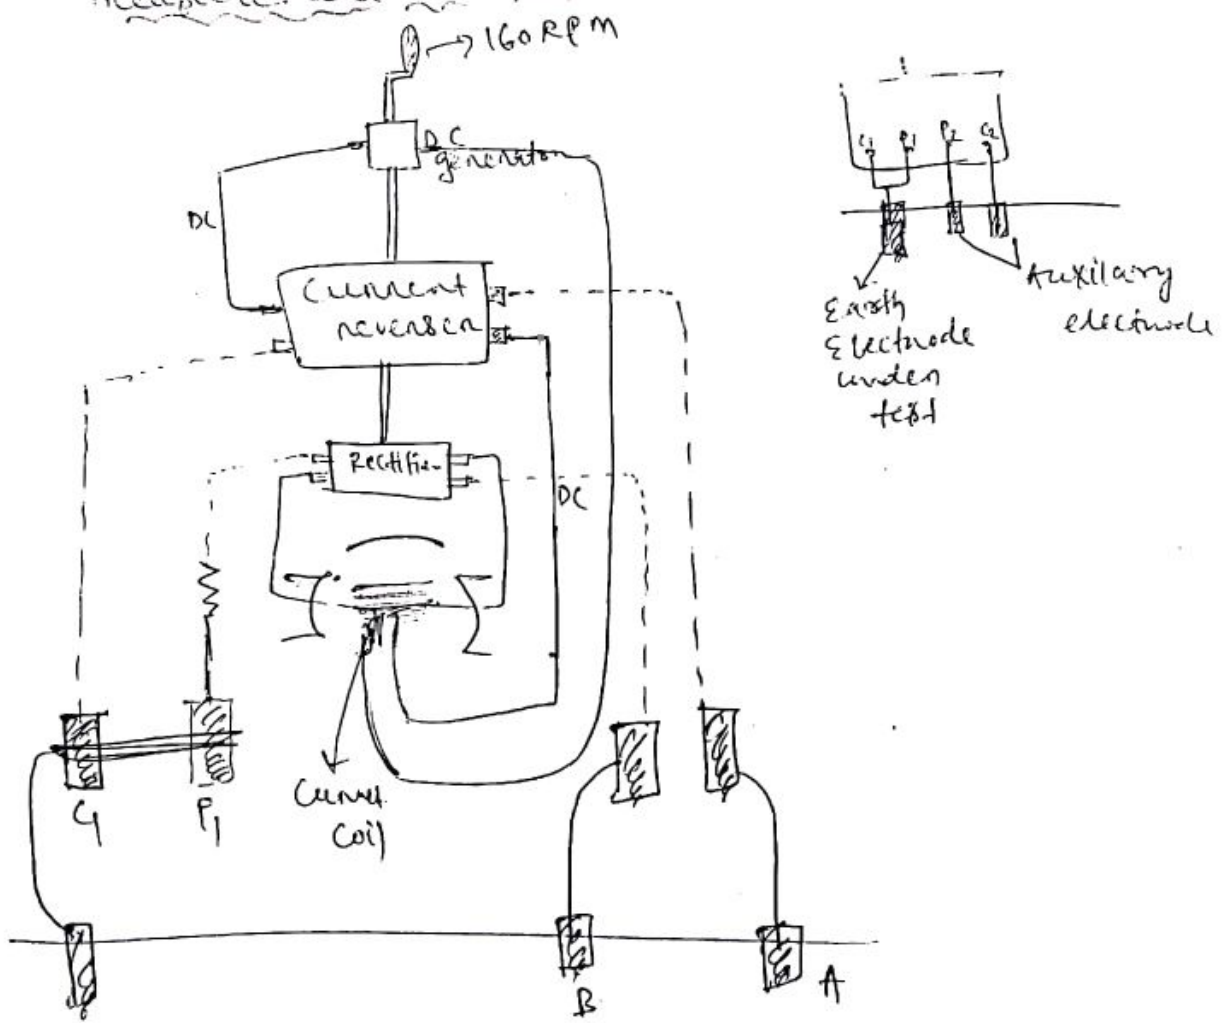 160 RPM
DC
generator
DC
Current
reverser
Rectifier
DC
C1
P1
Current
Coil
B
A
C1 P1 P2 C2
Earth
Electrode
under
test
Auxilary
electrode